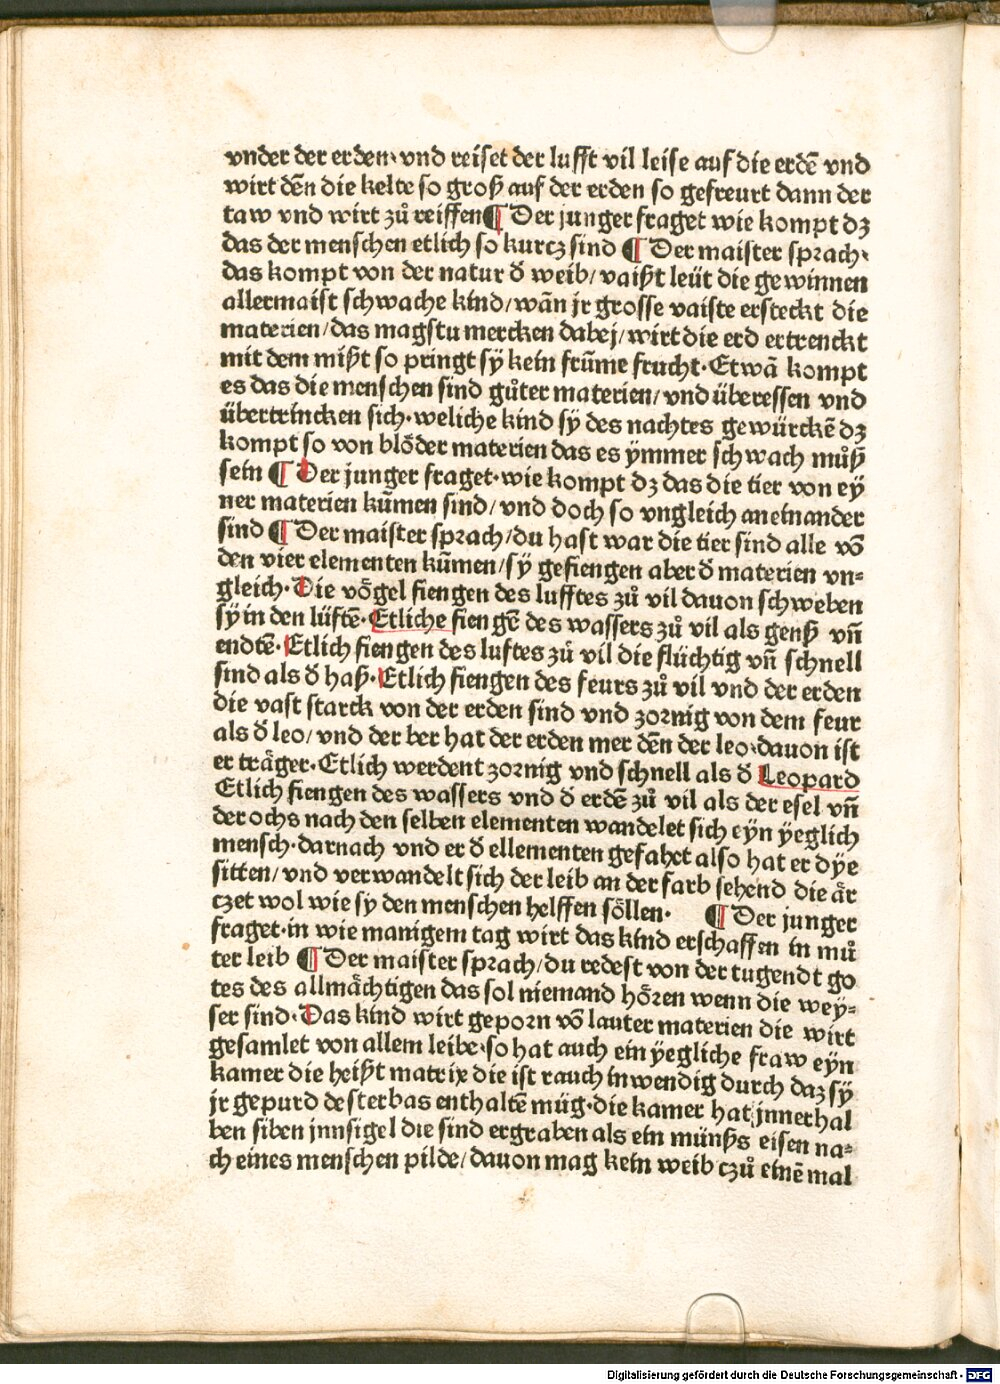 vnder der erden· vnd reiset der lufft vil leise auf die erdē vnd
wirt dēn die kelte so groß auf der erden so gefreurt dann der
taw vnd wirt zů reiffen ¶ Der junger fraget wie kompt dz
das der menschen etlich so kurcz sind ¶ Der maister sprach·
das kompt von der natur d̄ weib/ vaißt leüt die gewinnen
allermaist schwache kind/ wān jr grosse vaiste ersteckt die
materien/ das magstu mercken dabej/ wirt die erd ertrenckt
mit dem mißt so pringt sÿ kein frūme frucht· Etwā kompt
es das die menschen sind gůter materien/ vnd überessen vnd
übertrincken sich· weliche kind sÿ des nachtes gewürckē dz
kompt so von blöder materien das es ÿmmer schwach můß
sein ¶ Der junger fraget· wie kompt dz das die tier von eÿ
ner materien kūmen sind/ vnd doch so vngleich aneinander
sind ¶ Der maister sprach/ du hast war die tier sind alle vō
den vier elementen kūmen/ sÿ gefiengen aber d̄ materien vn⸗
gleich· Die vögel fiengen des lufftes zů vil dauon schweben
sÿ in den lüftē· Etliche fiengē des wassers zů vil als genß vn̄
endtē· Etlich fiengen des luftes zů vil die flüchtig vn̄ schnell
sind als d̄ haß· Etlich fiengen des feurs zů vil vnd der erden
die vast starck von der erden sind vnd zornig von dem feur
als d̄ leo/ vnd der ber hat der erden mer dēn der leo· dauon ist
er träger· Etlich werdent zornig vnd schnell als d̄ Leopard
Etlich fiengen des wassers vnd d̄ erdē zů vil als der esel vn̄
der ochs nach den selben elementen wandelet sich eÿn ÿeglich
mensch· darnach vnd er d̄ ellementen gefahet also hat er dÿe
sitten/ vnd verwandelt sich der leib an der farb sehend die är
czet wol wie sy den menschen helffen söllen· ¶ Der junger
fraget· in wie manigem tag wirt das kind erschaffen in mů
ter leib ¶ Der maister sprach/ du redest von der tugendt go
tes des allmächtigen das sol niemand hören wenn die wey⸗
ser sind· Das kind wirt geporn vō lauter materien die wirt
gesamlet von allem leibe· so hat auch ein ÿegliche fraw eÿn
kamer die heißt matrix die ist rauch inwendig durch daz sÿ
jr gepurd desterbas enthaltē müg· die kamer hat jnnerhal
ben siben jnnsigel die sind ergraben als ein münß eisen na⸗
ch eines menschen pilde/ dauon mag kein weib czů einē mal
Digitalisierung gefördert durch die Deutsche Forschungsgemeinschaft - DFG